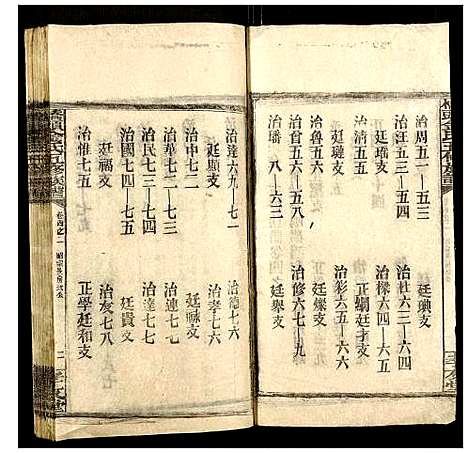 治周五二—五三
治汪五三—五四
廷瑤支
治魯五六
廷璉支
治璠 八—六三
廷鎮支
治杜六三—六四
治樑六四—六五
正嫻廷才支
治彩五六—六六
廷燦支
治修六七—六九
廷舉支
治達六九—七一
廷顯支
治中七二
治華七二—七三
治民七三—七四
治國七四—七五
廷福支
治惟七五
治德七六
治孝七六
廷脉支
治連七七
治達七七
廷貴支
治友七八
正學廷和支
氏五修族譜
卷首之二
二